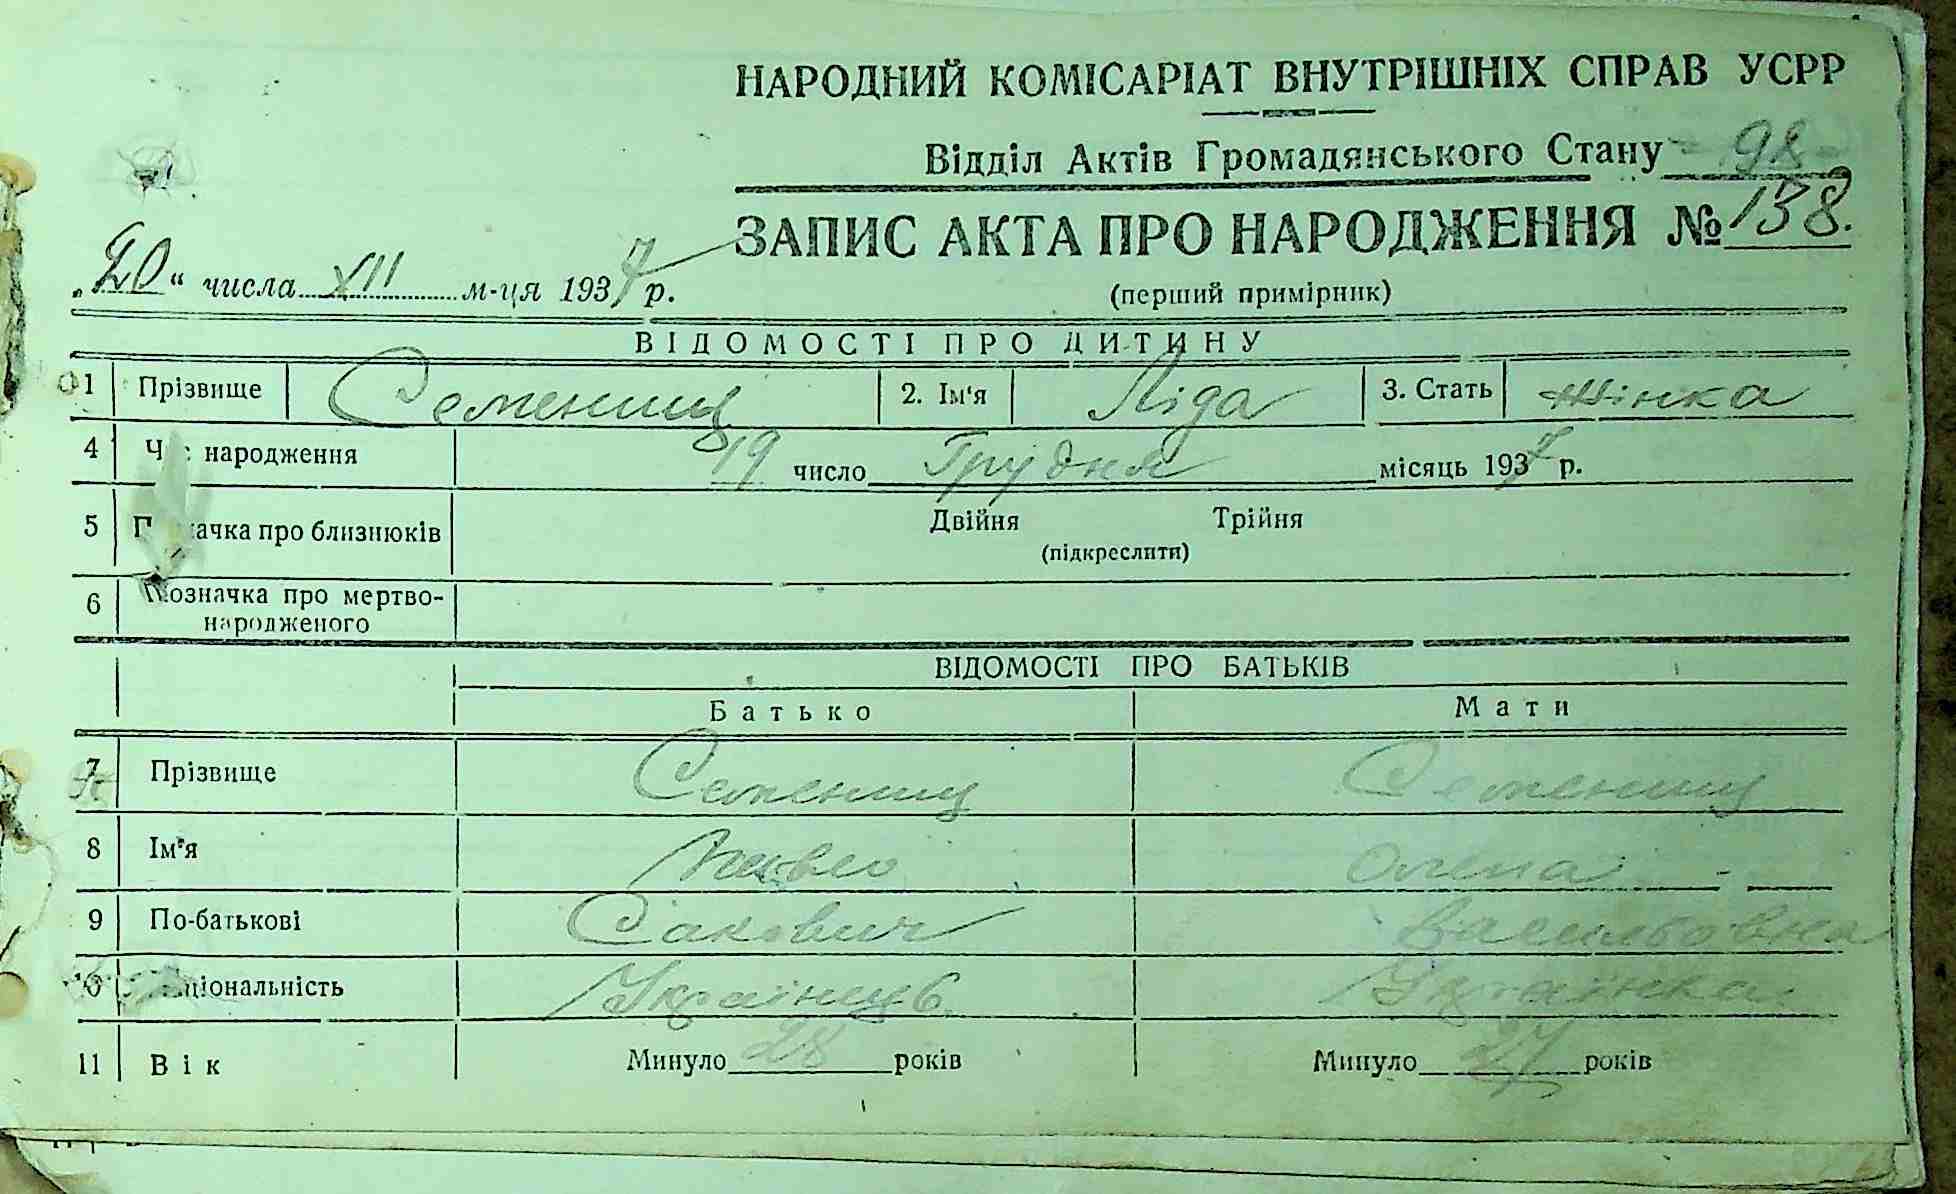 НАРОДНИЙ КОМІСАРІАТ ВНУТРІШНІХ СПРАВ УСРР
Відділ Актів Громадянського Стану 98
ЗАПИС АКТА ПРО НАРОДЖЕННЯ № 138.
„20“ числа XII м-ця 1937 р.
(перший примірник)
ВІДОМОСТІ ПРО ДИТИНУ
1 Прізвище Семениш 2. Ім'я Ліда 3. Стать жінка
4 Час народження 19 число Грудня місяць 1937 р.
5 Позначка про близнюків Двійня Трійня
(підкреслити)
6 Позначка про мертво-
народженого
ВІДОМОСТІ ПРО БАТЬКІВ
Батько Мати
7 Прізвище Семениш Семениш
8 Ім'я Павло Олена
9 По-батькові Сакович Васильовна
10 Національність Українець Українка
11 Вік Минуло 28 років Минуло 27 років